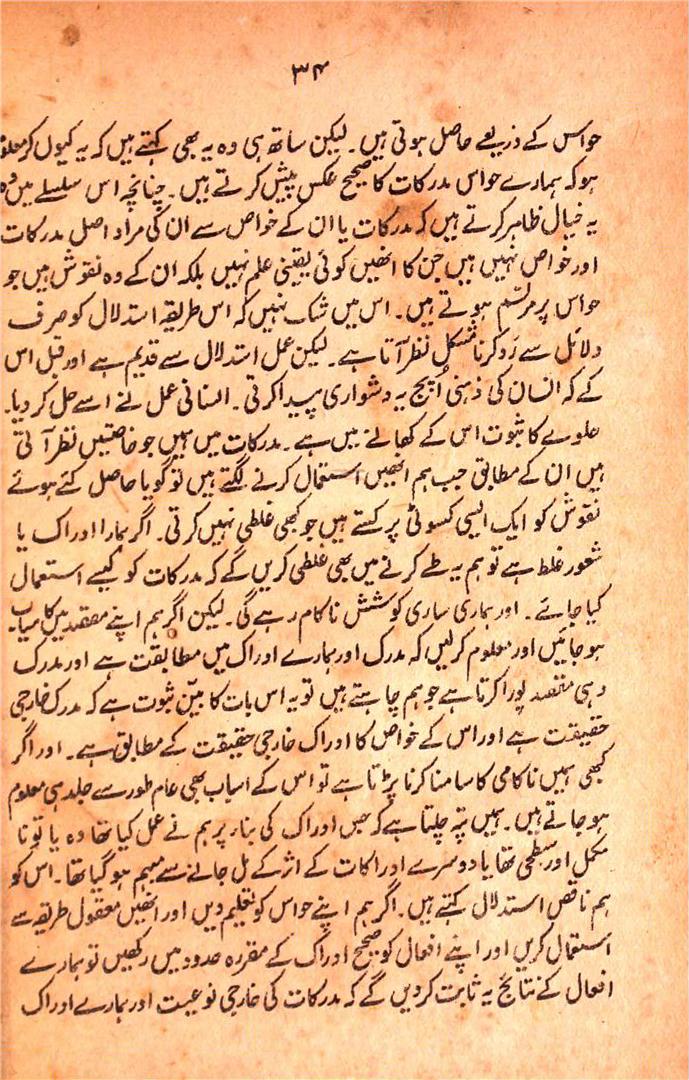 ۳۴
حواس کے ذریعے حاصل ہوتی ہیں۔ لیکن ساتھ ہی وہ یہ بھی کہتے ہیں کہ یہ کیوں کر معلوم
ہو کہ ہمارے حواس مدرکات کا صحیح عکس پیش کرتے ہیں۔ چنانچہ اس سلسلے میں وہ
یہ خیال ظاہر کرتے ہیں کہ مدرکات یا ان کے خواص سے ان کی مراد اصل مدرکات
اور خواص نہیں ہیں جن کا انھیں کوئی یقینی علم نہیں بلکہ ان کے وہ نقوش ہیں جو
حواس پر مرتسم ہوتے ہیں۔ اس میں شک نہیں کہ اس طریقۂ استدلال کو صرف
دلائل سے رد کرنا مشکل نظر آتا ہے۔ لیکن عمل استدلال سے قدیم ہے اور قبل اس
کے کہ انسان کی ذہنی اُپج یہ دشواری پیدا کرتی۔ انسانی عمل نے اسے حل کر دیا۔
حلوے کا ثبوت اس کے کھانے میں ہے۔ مدرکات میں ہمیں جو خاصیتیں نظر آتی
ہیں ان کے مطابق جب ہم انھیں استعمال کرنے لگتے ہیں تو گویا حاصل کئے ہوئے
نقوش کو ایک ایسی کسوٹی پر کستے ہیں جو کبھی غلطی نہیں کرتی۔ اگر ہمارا ادراک یا
شعور غلط ہے تو ہم یہ طے کرنے میں بھی غلطی کریں گے کہ مدرکات کو کیسے استعمال
کیا جائے۔ اور ہماری ساری کوشش ناکام رہے گی۔ لیکن اگر ہم اپنے مقصد میں کامیاب
ہو جائیں اور معلوم کر لیں کہ مدرک اور ہمارے ادراک میں مطابقت ہے اور مدرک
وہی مقصد پورا کرتا ہے جو ہم چاہتے ہیں تو یہ اس بات کا بیّن ثبوت ہے کہ مدرک خارجی
حقیقت ہے اور اس کے خواص کا ادراک خارجی حقیقت کے مطابق ہے۔ اور اگر
کبھی ہمیں ناکامی کا سامنا کرنا پڑتا ہے تو اس کے اسباب بھی عام طور سے جلد ہی معلوم
ہو جاتے ہیں۔ ہمیں پتہ چلتا ہے کہ جس ادراک کی بناء پر ہم نے عمل کیا تھا وہ یا تو نا
مکمل اور سطحی تھا یا دوسرے ادراکات کے اثر کے مل جانے سے مبہم ہو گیا تھا۔ اس کو
ہم ناقص استدلال کہتے ہیں۔ اگر ہم اپنے حواس کو تعلیم دیں اور انھیں معقول طریقہ سے
استعمال کریں اور اپنے افعال کو صحیح ادراک کے مقررہ حدود میں رکھیں تو ہمارے
افعال کے نتائج یہ ثابت کر دیں گے کہ مدرکات کی خارجی نوعیت اور ہمارے ادراک